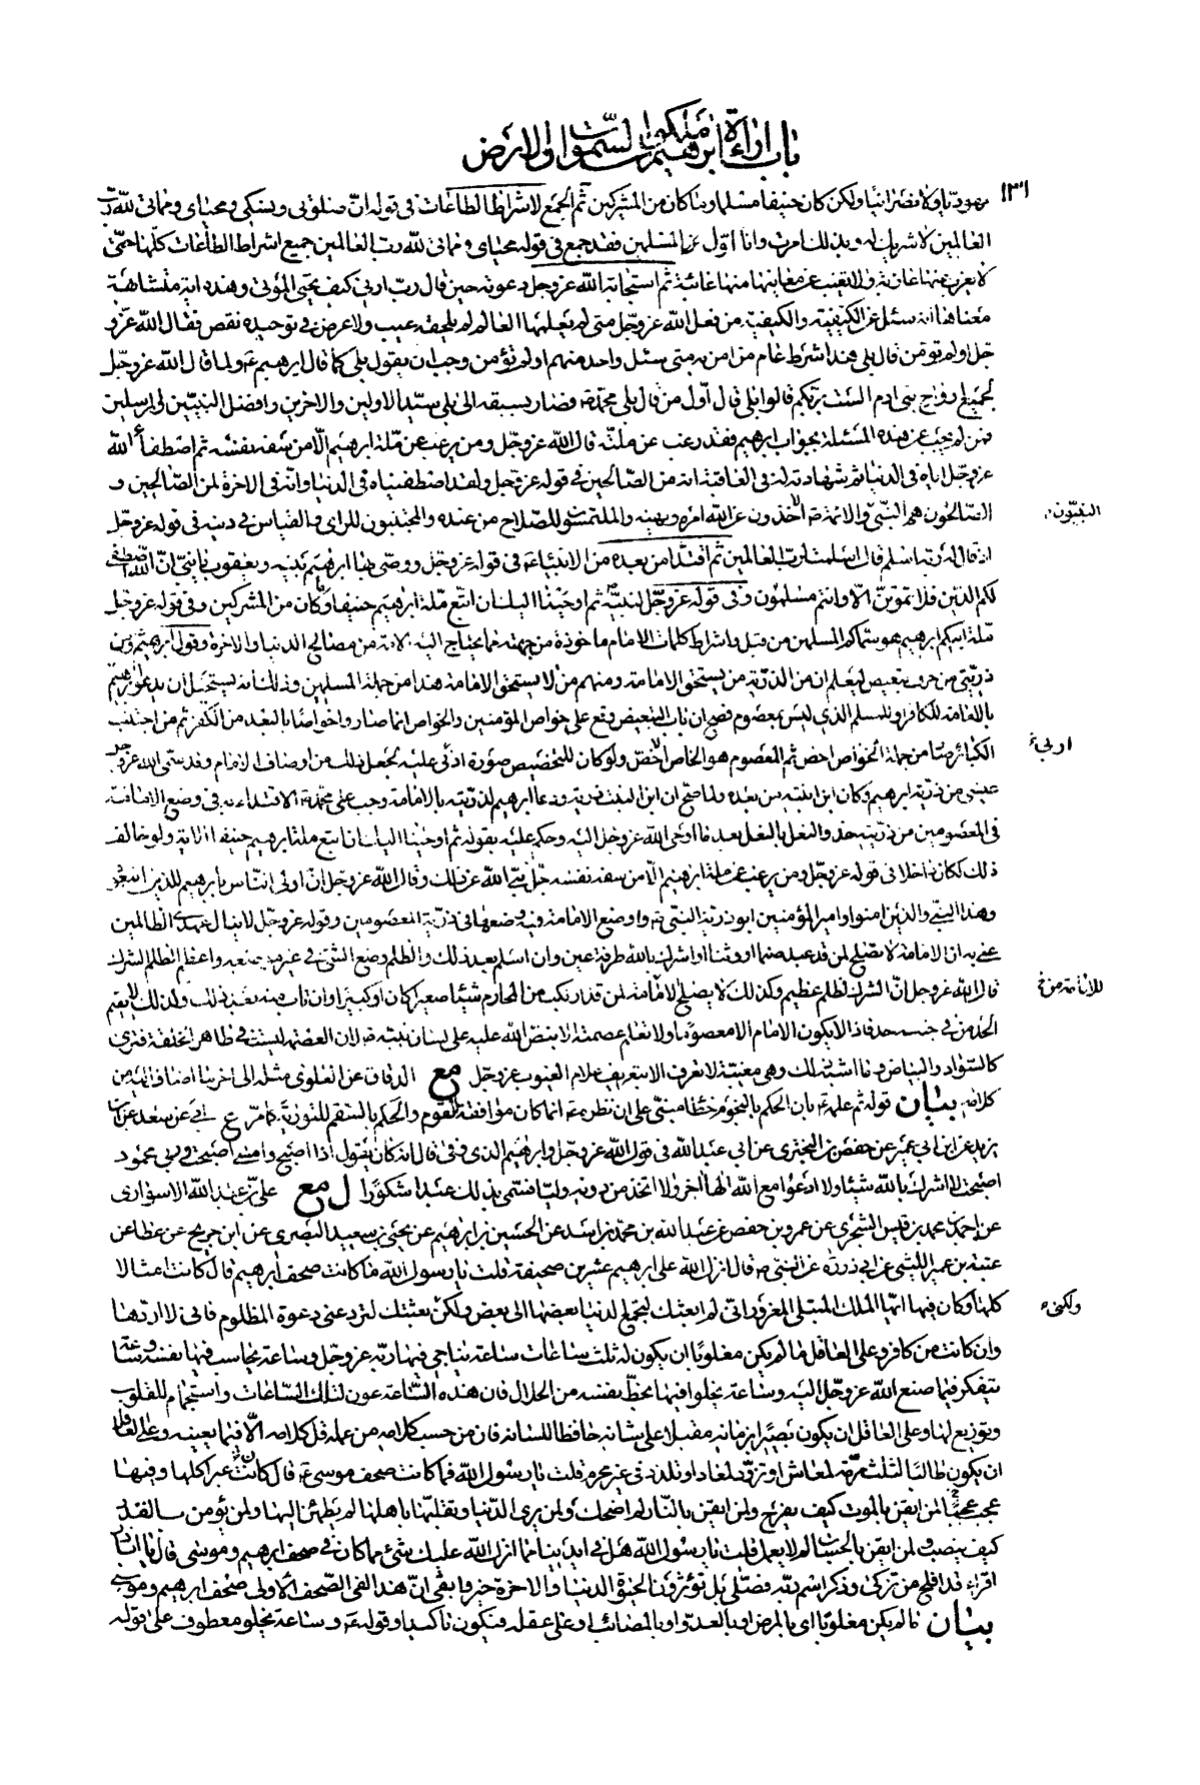 باب اراءة ابرهيم ملكوت السموات والارض
١٣١
يهوديا ولا نصرانيا ولكن كان حنيفا مسلما وما كان من المشركين ثم الجمع لاشراط الطاعات فى قوله ان صلوتى ونسكى ومحياى ومماتى لله رب
العالمين لا شريك له وبذلك امرت وانا اول المسلمين فقد جمع فى قوله محياى ومماتى لله رب العالمين جميع اشراط الطاعات كلها حتى
لا يعزب عنها عازبة ولا يغيب عن معانيها منها غائبة ثم استجابة الله عز وجل دعوته حين قال رب ارنى كيف تحيى الموتى وهذه اية متشابهة
معناها انه سئل عن الكيفية والكيفية من فعل الله عز وجل متى لم يعلمها العالم لم يلحقه عيب ولا عرض فى توحيده نقص فقال الله عز و
جل اولم تؤمن قال بلى هذا شرط عام من امن به متى سئل واحد منهم اولم تؤمن وجب ان يقول بلى كما قال ابرهيم ع ولما قال الله عز وجل
لجميع ارواح بنى ادم الست بربكم قالوا بلى قال اول من قال بلى محمد ص فصار بسبقه الى بلى سيد الاولين والاخرين وافضل النبيين والمرسلين
فمن لم يجب عن هذه المسئلة بجواب ابرهيم فقد رغب عن ملته قال الله عز وجل ومن يرغب عن ملة ابرهيم الا من سفه نفسه ثم اصطفاء الله
عز وجل اياه فى الدنيا ثم شهادته له فى العاقبة انه من الصالحين فى قوله عز وجل ولقد اصطفيناه فى الدنيا وانه فى الاخرة لمن الصالحين و
الصالحون هم النبى والائمة ص الاخذون عن الله امره ونهيه والملتمسون للصلاح من عنده والمجتنبون للراى والقياس فى دينه فى قوله عز وجل
النبيون
اذ قال له ربه اسلم قال اسلمت لرب العالمين ثم اقتداء من بعده من الانبياء ع فى قوله عز وجل ووصى بها ابرهيم بنيه ويعقوب يا بنى ان الله اصطفى
لكم الدين فلا تموتن الا وانتم مسلمون وفى قوله عز وجل لنبيه ص ثم اوحينا اليك ان اتبع ملة ابرهيم حنيفا وما كان من المشركين وفى قوله عز وجل
ملة ابيكم ابرهيم هو سماكم المسلمين من قبل واشراط كلمات الامام ماخوذة من جهته مما يحتاج اليه الامة من مصالح الدنيا والاخرة وقول ابرهيم ومن
ذريتى من حرف تبعيض ليعلم ان من الذرية من يستحق الامامة ومنهم من لا يستحق الامامة هذا من جملة المسلمين وذلك انه يستحيل ان يدعو ابرهيم
بالامامة للكافر او للمسلم الذى ليس بمعصوم فصح ان باب التبعيض وقع على خواص المؤمنين والخواص انما صاروا خواصا بالبعد من الكفر ثم من اجتنب
الكبائر صار من جملة الخواص اخص ثم المعصوم هو الخاص الاخص ولو كان للتخصيص صورة ادنى عليه لجعل ذلك من اوصاف الامام وقد سمى الله عز وجل
اربى
عيسى من ذرية ابرهيم وكان ابن ابنته من بعده ولما صح ان ابن البنت ذرية ودعا ابرهيم لذريته بالامامة وجب على محمد ص الاقتداء به فى وضع الامامة
فى المعصومين من ذريته حذو النعل بالنعل بعد ما اوحى الله عز وجل اليه وحكم عليه بقوله ثم اوحينا اليك ان اتبع ملة ابرهيم حنيفا الاية ولو خالف
ذلك لكان داخلا فى قوله عز وجل ومن يرغب عن ملة ابرهيم الا من سفه نفسه جل نبى الله عن ذلك وقال الله عز وجل ان اولى الناس بابرهيم للذين اتبعوه
وهذا النبى والذين امنوا وامير المؤمنين ابو ذرية النبى ص ووضع الامامة فيه وضعها فى ذرية المعصومين وقوله عز وجل لا ينال عهدى الظالمين
عنى به ان الامامة لا تصلح لمن قد عبد صنما او وثنا او اشرك بالله طرفة عين وان اسلم بعد ذلك والظلم وضع الشئ فى غير موضعه واعظم الظلم الشرك
قال الله عز وجل ان الشرك لظلم عظيم وكذلك لا يصلح للامامة من قد ارتكب من المحارم شيئا صغيرا كان او كبيرا وان تاب منه بعد ذلك وكذلك لا يقيم
للامامة من خ
الحد من فى جنبه حد فاذا لا يكون الامام الا معصوما ولا نعلم عصمته الا بنص الله عليه على لسان نبيه ص لان العصمة ليست فى ظاهر الخلقة فترى
كالسواد والبياض وما اشبه ذلك وهى مغيبة لا تعرف الا بتعريف علام الغيوب عز وجل مع الدقاق عن العلوى مثله الى اخر ما اضاف اليه من
كلامه بيان قوله ثم علمه ع بان الحكم بالنجوم خطأ مبنى على ان نظره ع انما كان موافقة للقوم والحكم بالسقم للتورية كما مر ع ابى عن سعد عن ابن
يزيد عن ابن ابى عمير عن حفص بن البخترى عن ابى عبد الله فى قول الله عز وجل وابرهيم الذى وفى قال انه كان يقول اذا اصبح وامسى اصبحت وربى محمود
اصبحت لا اشرك بالله شيئا ولا ادعو مع الله الها اخر ولا اتخذ من دونه وليا فسمى بذلك عبدا شكورا ل مع على بن عبد الله الاسوارى
عن احمد بن محمد بن قيس الشجرى عن عمرو بن حفص عن عبد الله بن محمد بن اسد عن الحسين بن ابرهيم عن يحيى بن سعيد البصرى عن ابن جريح عن عطا عن
عتبة بن عمير الليثى عن ابى ذر ره عن النبى ص قال انزل الله على ابرهيم عشرين صحيفة قلت يا رسول الله ما كانت صحف ابرهيم قال كانت امثالا
كلها وكان فيها ايها الملك المبتلى المغرور انى لم ابعثك لتجمع الدنيا بعضها الى بعض ولكن بعثتك لترد عنى دعوة المظلوم فانى لا اردها
ولكنى
وان كانت من كافر وعلى العاقل ما لم يكن مغلوبا ان يكون له ثلث ساعات ساعة يناجى فيها ربه عز وجل وساعة يحاسب فيها نفسه وساعة
يتفكر فيما صنع الله عز وجل اليه وساعة يخلو فيها بحظ نفسه من الحلال فان هذه الساعة عون لتلك الساعات واستجمام للقلوب
وتوزيع لها وعلى العاقل ان يكون بصيرا بزمانه مقبلا على شانه حافظا للسانه فان من حسب كلامه من عمله قل كلامه الا فيما يعنيه وعلى العاقل
ان يكون طالبا لثلث مرمة لمعاش او تزود لمعاد او تلذذ فى غير محرم قلت يا رسول الله فما كانت صحف موسى ع قال كانت عبرا كلها وفيها
عجب لمن ايقن بالموت كيف يفرح ولمن ايقن بالنار لم اضحك ولمن يرى الدنيا وتقلبها باهلها لم يطمئن اليها ولمن يؤمن بالقدر
كيف ينصب ولمن ايقن بالحساب لم لا يعمل قلت يا رسول الله هل فى ايدينا مما انزل الله عليك شئ مما كان فى صحف ابرهيم وموسى قال يا اباذر
اقرا قد افلح من تزكى وذكر اسم ربه فصلى بل تؤثرون الحيوة الدنيا والاخرة خير وابقى ان هذا لفى الصحف الاولى صحف ابرهيم وموسى
بيان ما لم يكن مغلوبا اى بالمرض او بالعدو او بالمصائب او على عقله فيكون تاكيدا وقوله ع وساعة يخلو معطوف على قوله